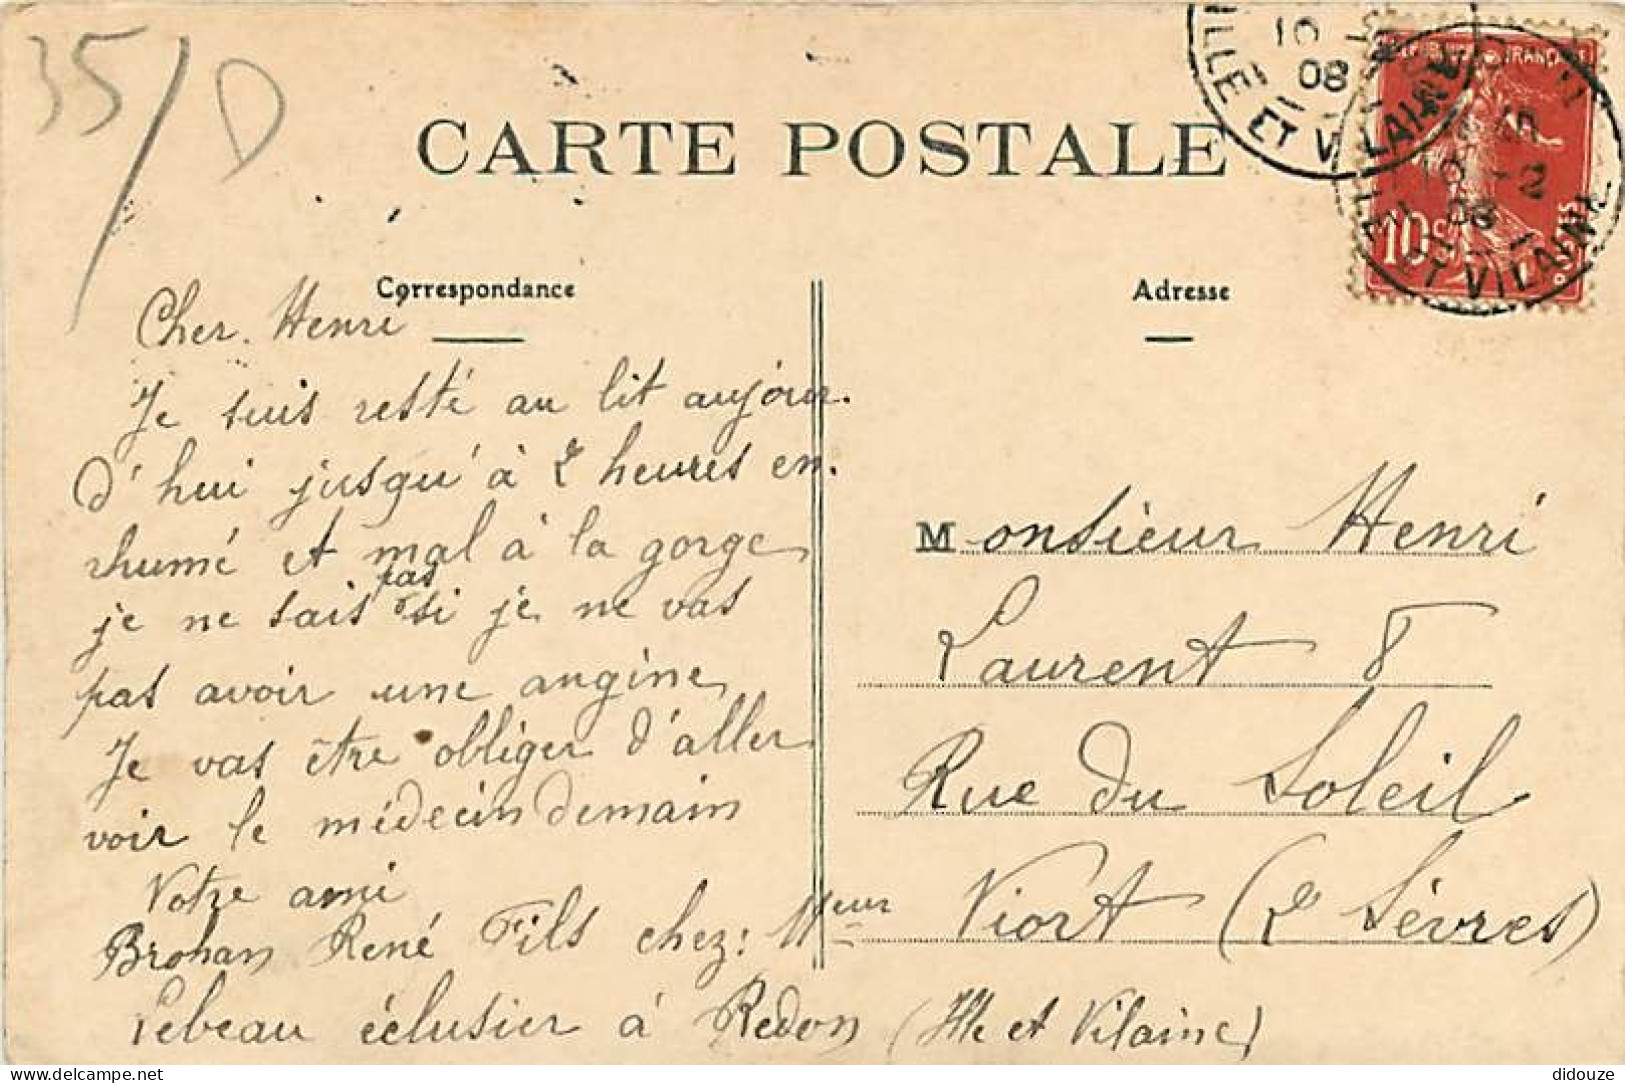 35/D
CARTE POSTALE
Correspondance
Cher Henri
Je suis resté au lit aujour.
d'hui jusqu'à 2 heures en.
rhumé et mal à la gorge,
pas
je ne sais si je ne vas
pas avoir une angine,
Je vas être obliger d'aller
voir le médecin demain
Votre ami
Brohan René Fils chez: Meur
Lebeau éclusier à Redon (Ille et Vilaine)
Adresse
Monsieur Henri
Laurent 8
Rue du Soleil
Niort (2 Sèvres)
ILLE ET VILAINE
10
08
REPUBLIQUE FRANÇAISE
10c
ET VILAINE
10 - 2
08
delcampe.net
didouze